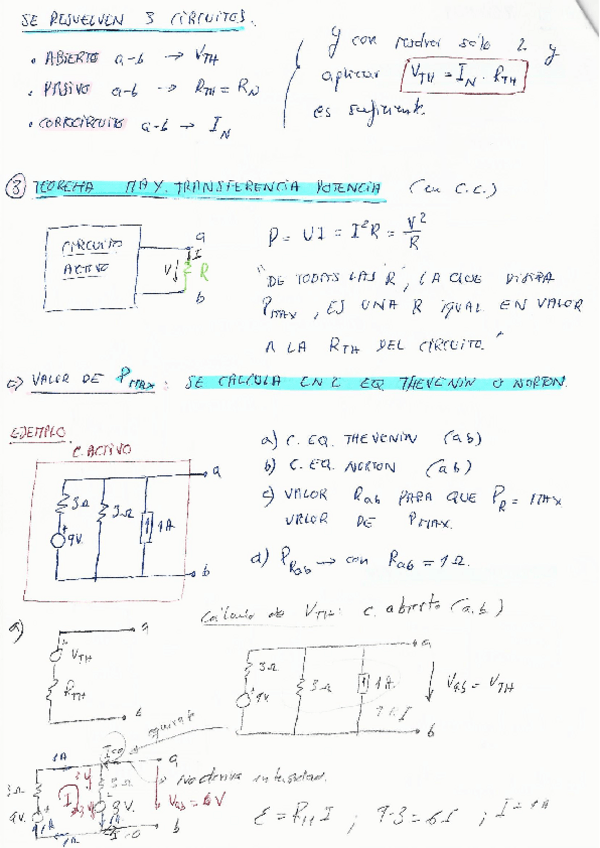 SE RESUELVEN 3 CIRCUITOS.
• ABIERTO a-b → VTH
• PASIVO a-b → RTH = RN
• CORTOCIRCUITO a-b → IN
y con resolver sólo 2 y
aplicar VTH = IN · RTH
es suficiente.
③ TEOREMA MAX. TRANSFERENCIA POTENCIA (en C.C.)
CIRCUITO
ACTIVO
a
I
V
R
b
P = UI = I²R = V²/R
"DE TODAS LAS R, LA QUE DISIPA
PMAX, ES UNA R IGUAL EN VALOR
A LA RTH DEL CIRCUITO."
VALOR DE PMAX: SE CALCULA EN EL EQ THEVENIN O NORTON.
EJEMPLO
C. ACTIVO
3Ω
9V
3Ω
1A
a
b
a) C. EQ. THEVENIN (ab)
b) C. EQ. NORTON (ab)
c) VALOR Rab PARA QUE PR = MAX
VALOR DE PMAX.
d) PRab → con Rab = 1Ω.
a)
a
VTH
RTH
Cálculo de VTH: C. abierto (a,b)
3Ω
9V
3Ω
1A
a
b
Vab = VTH
1A
a
3Ω
9V
I
3Ω
3V
No deriva intensidad.
Vab = 6V
I=0
b
1A
ε = R11 I ; 9-3 = 6I ; I = 1A